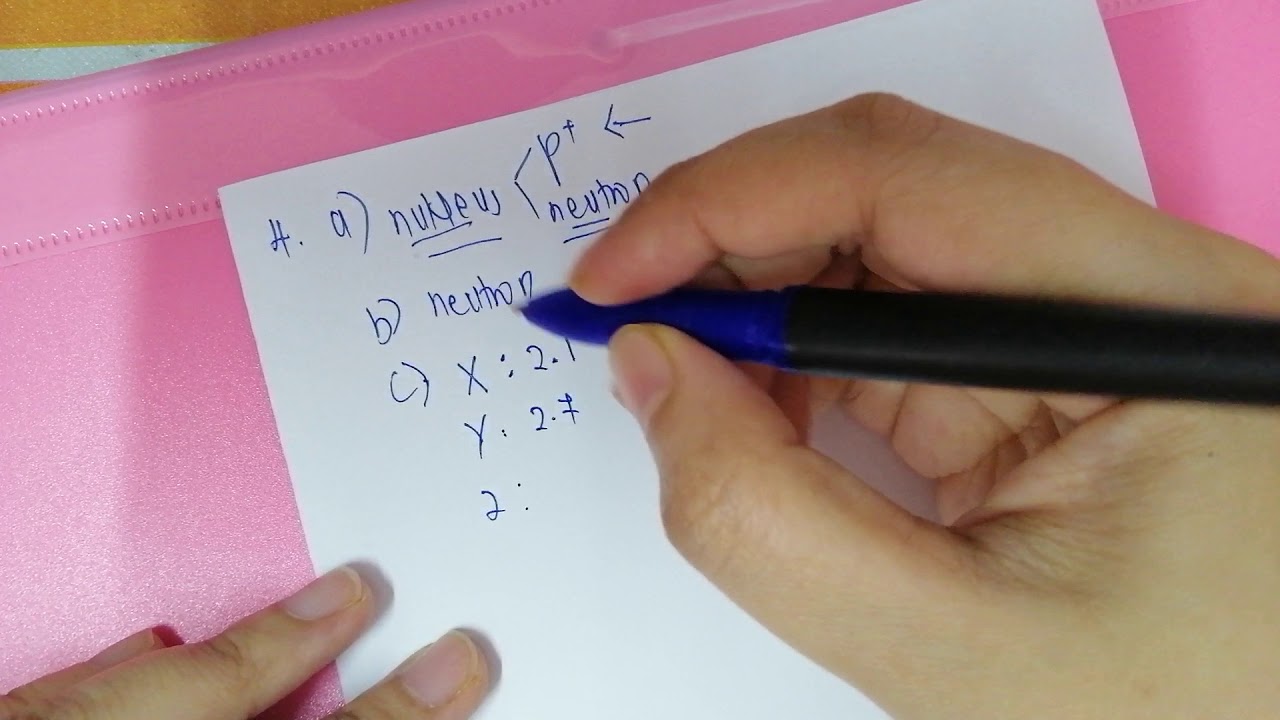 4. a) nukleus < p+ ←
neutron
b) neutron
c) X : 2.1
Y : 2.7
2 :